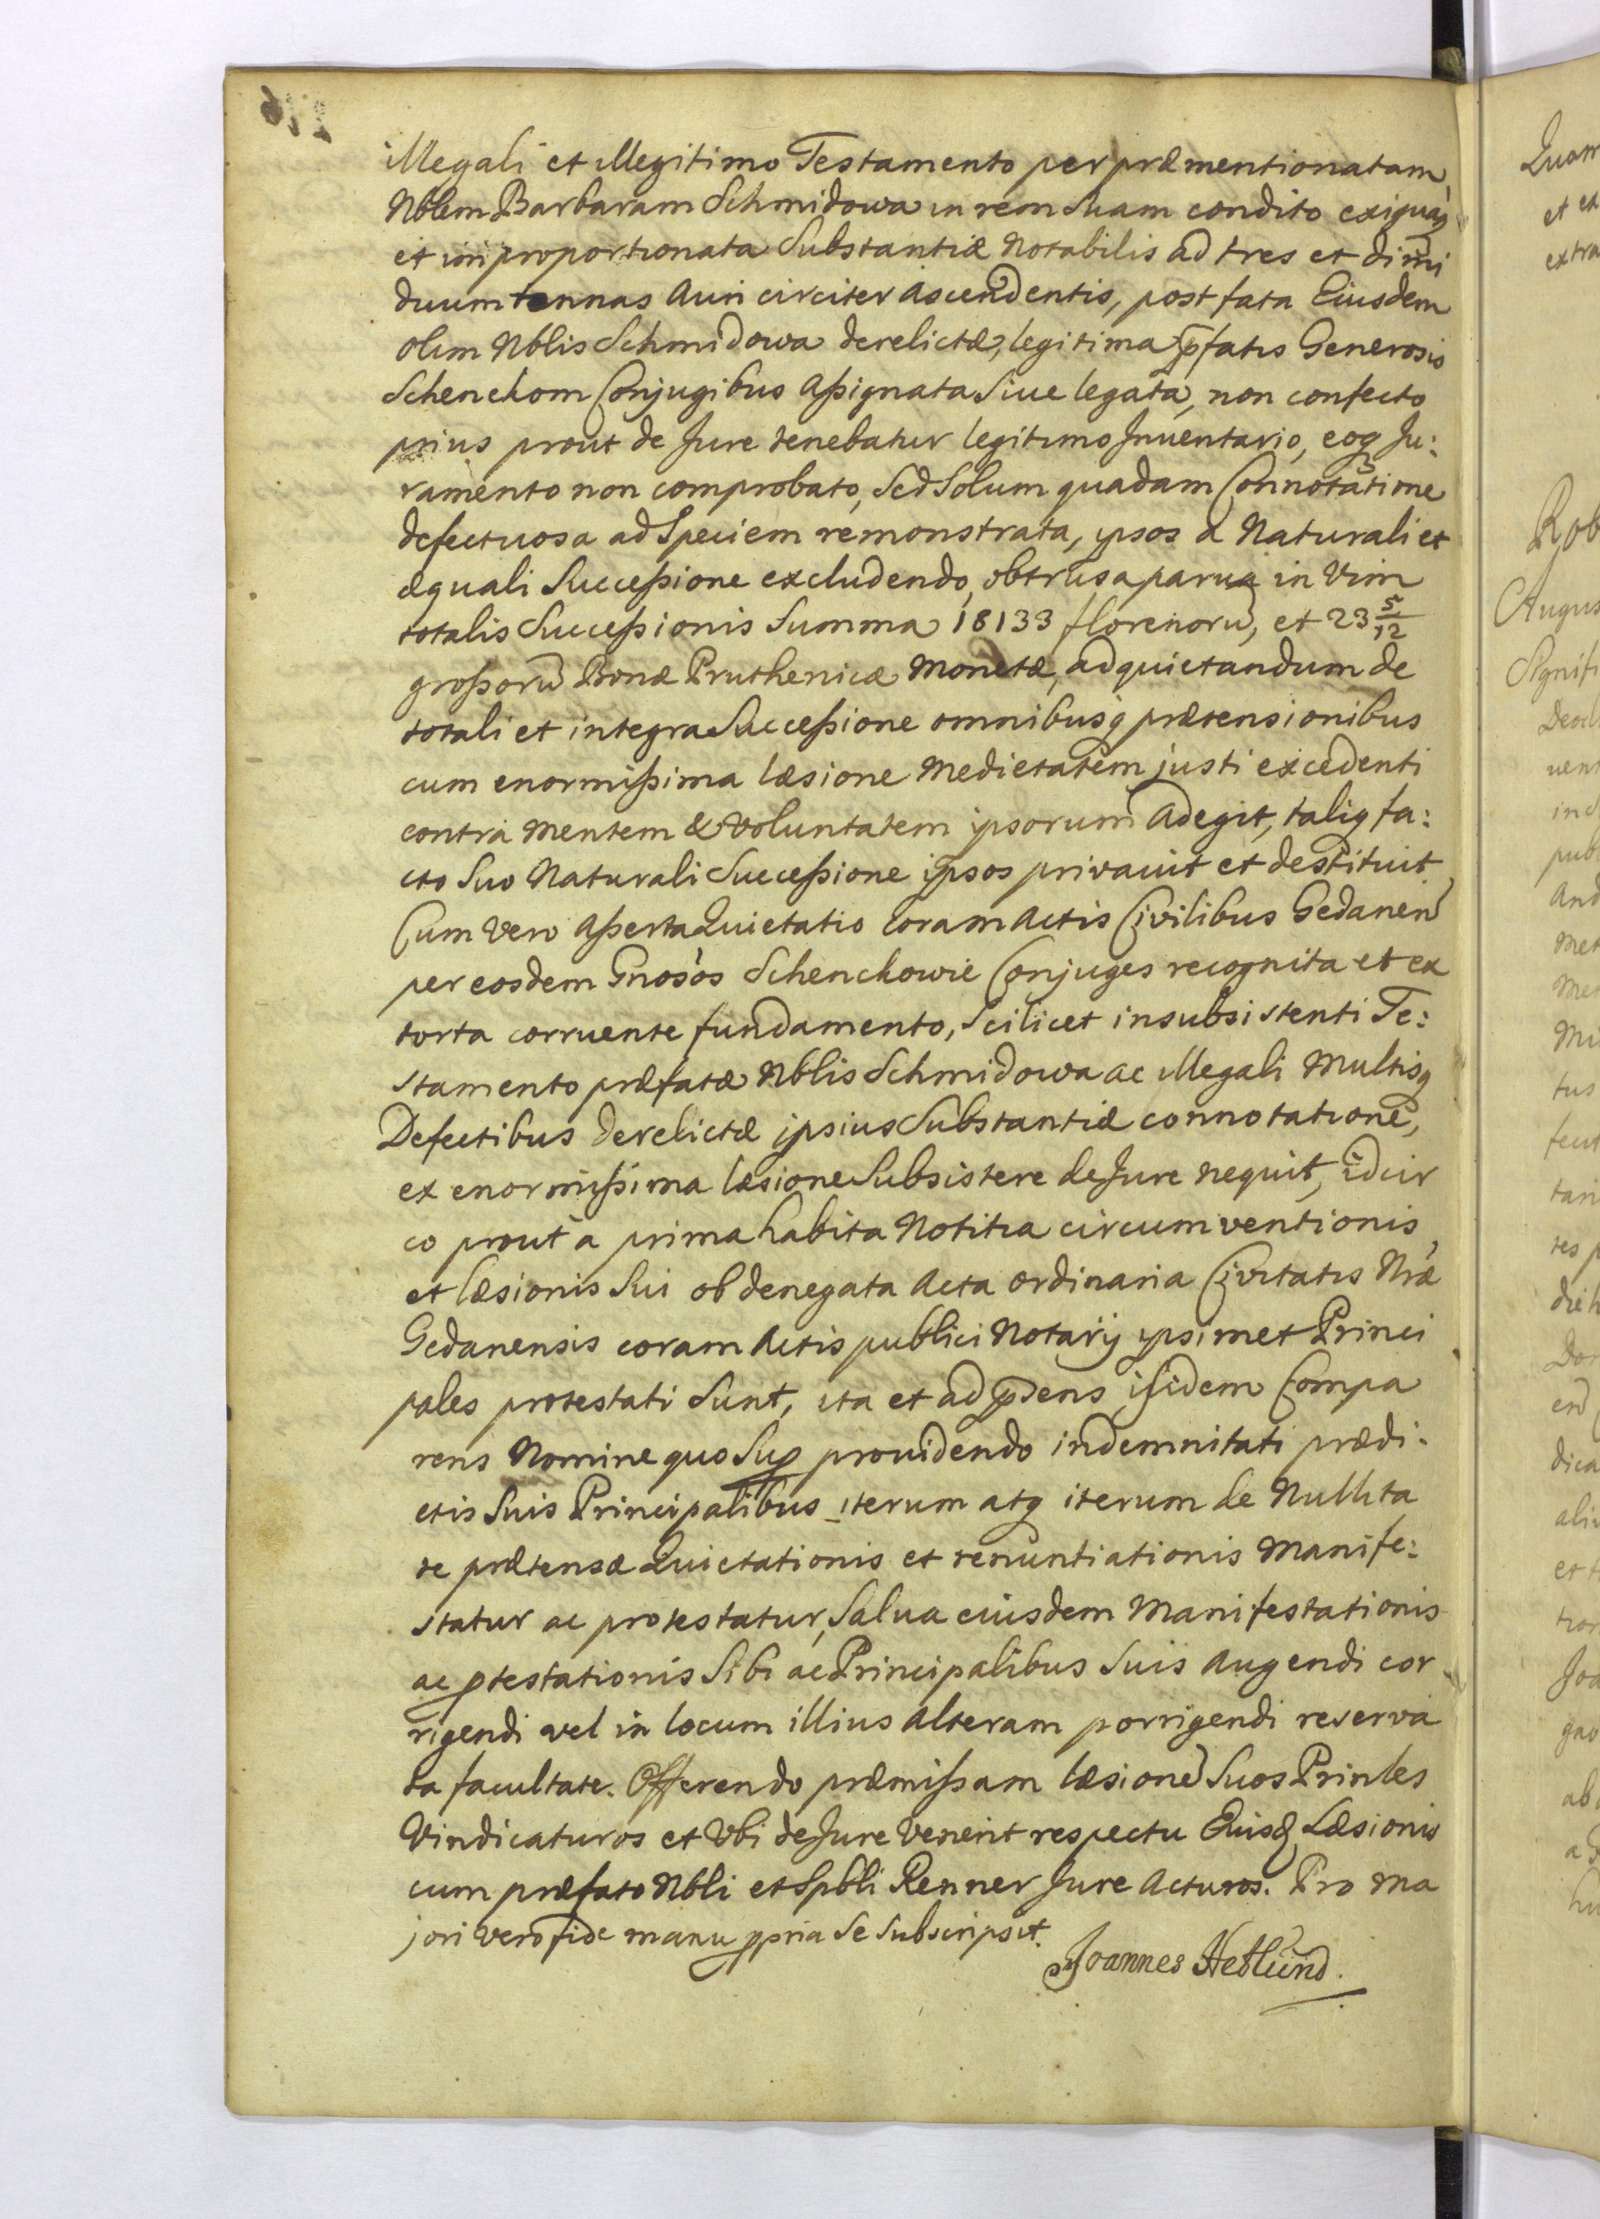 illegali et illegitimo Testamento per præmentionatam
Nblem Barbaram Schmidowa in rem Suam condito exiguaq
et improportionata Substantiæ Notabilis ad tres et dimi
duum tonnas Auri circiter Ascendentis, post fata Eiusdem
olim Nblis Schmidowa derelictæ, legitima pfatis Generosis
Schenckom Conjugibus Aßignata Siue legata, non confecto
prius prout de Jure tenebatur legitimo Inuentario, eoq Ju:
ramento non comprobato, Sed Solum quadam Connotatione
defectuosa ad Speciem remonstrata, ipsos a Naturali et
æquali Succeßione excludendo, obtrusa parua in Vim
totalis Succeßionis Summa 18133 florenorũ, et 23 5/12
großorũ Bonæ Pruthenicæ Monetæ, ad quietandum de
totali et integra Succeßione omnibusq prætensionibus
cum enormißima læsione Medietatem justi excedenti
contra Mentem & Voluntatem ipsorum Adegit, taliq fa:
cto Suo Naturali Succeßione ipsos privauit et destituit
Cum Vero Aßerta Quietatio Coram Actis Civilibus Gedanen
per eosdem Gnosos Schenckowie Conjuges recognita et ex
torta corruente fundamento, Scilicet insubsistenti Te:
stamento præfatæ Nblis Schmidowa ac illegali Multisq
Defectibus derelictæ ipsius Substantiæ connotatione,
ex enormißima læsione Subsistere de Jure nequit, idcir
co prout à prima habita Notitia circumventionis
et læsionis Sui ob denegata Acta ordinaria Civitatis Nræ
Gedanensis coram Actis publici Notarij ipsimet Princi
pales protestati Sunt, ita et ad pñsens ijsidem Compa
rens Nomine quo Sup prouidendo indemnitati prædi:
ctis Suis Principalibus iterum atq iterum de Nullita
te prætensæ Quietationis et renuntiationis Manife:
statur ac protestatur, Salua eiusdem Manifestationis
ac ptestationis Sibi ac Principalibus Suis Augendi cor
rigendi vel in locum illius Alteram porrigendi reserva
ta facultate. Offerendo præmißam læsionẽ Suos Prinles
Vindicaturos et Vbi de Jure Venerit respectu Eiusd Læsionis
cum præfato Nbli et Spbli Renner Jure Acturos. Pro Ma
jori Vero fide manu ppria Se Subscripsit.
Joannes Hetlund.